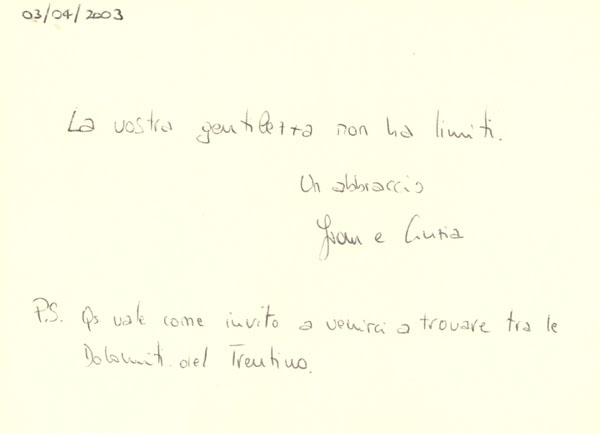 03/04/2003
La vostra gentilezza non ha limiti.
Un abbraccio
Ivan e Cinzia
P.S. Qs vale come invito a venirci a trovare tra le
Dolomiti del Trentino.